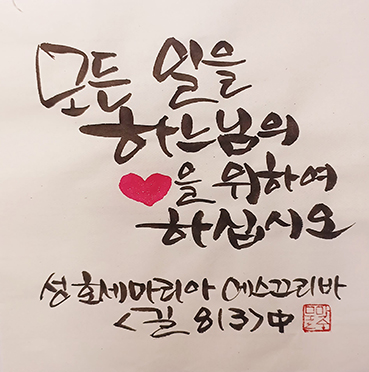 모든 일을
하느님의
을 위하여
하십시오
성 호세마리아 에스끄리바
<길 813>中